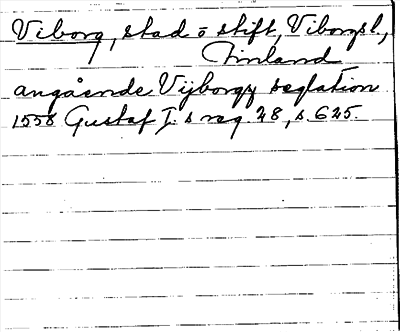 Viborg, stad o stift, Viborgsl.,
Finland
angående Vijborgz seglation
1558 Gustaf I:s reg. 28, s. 625.